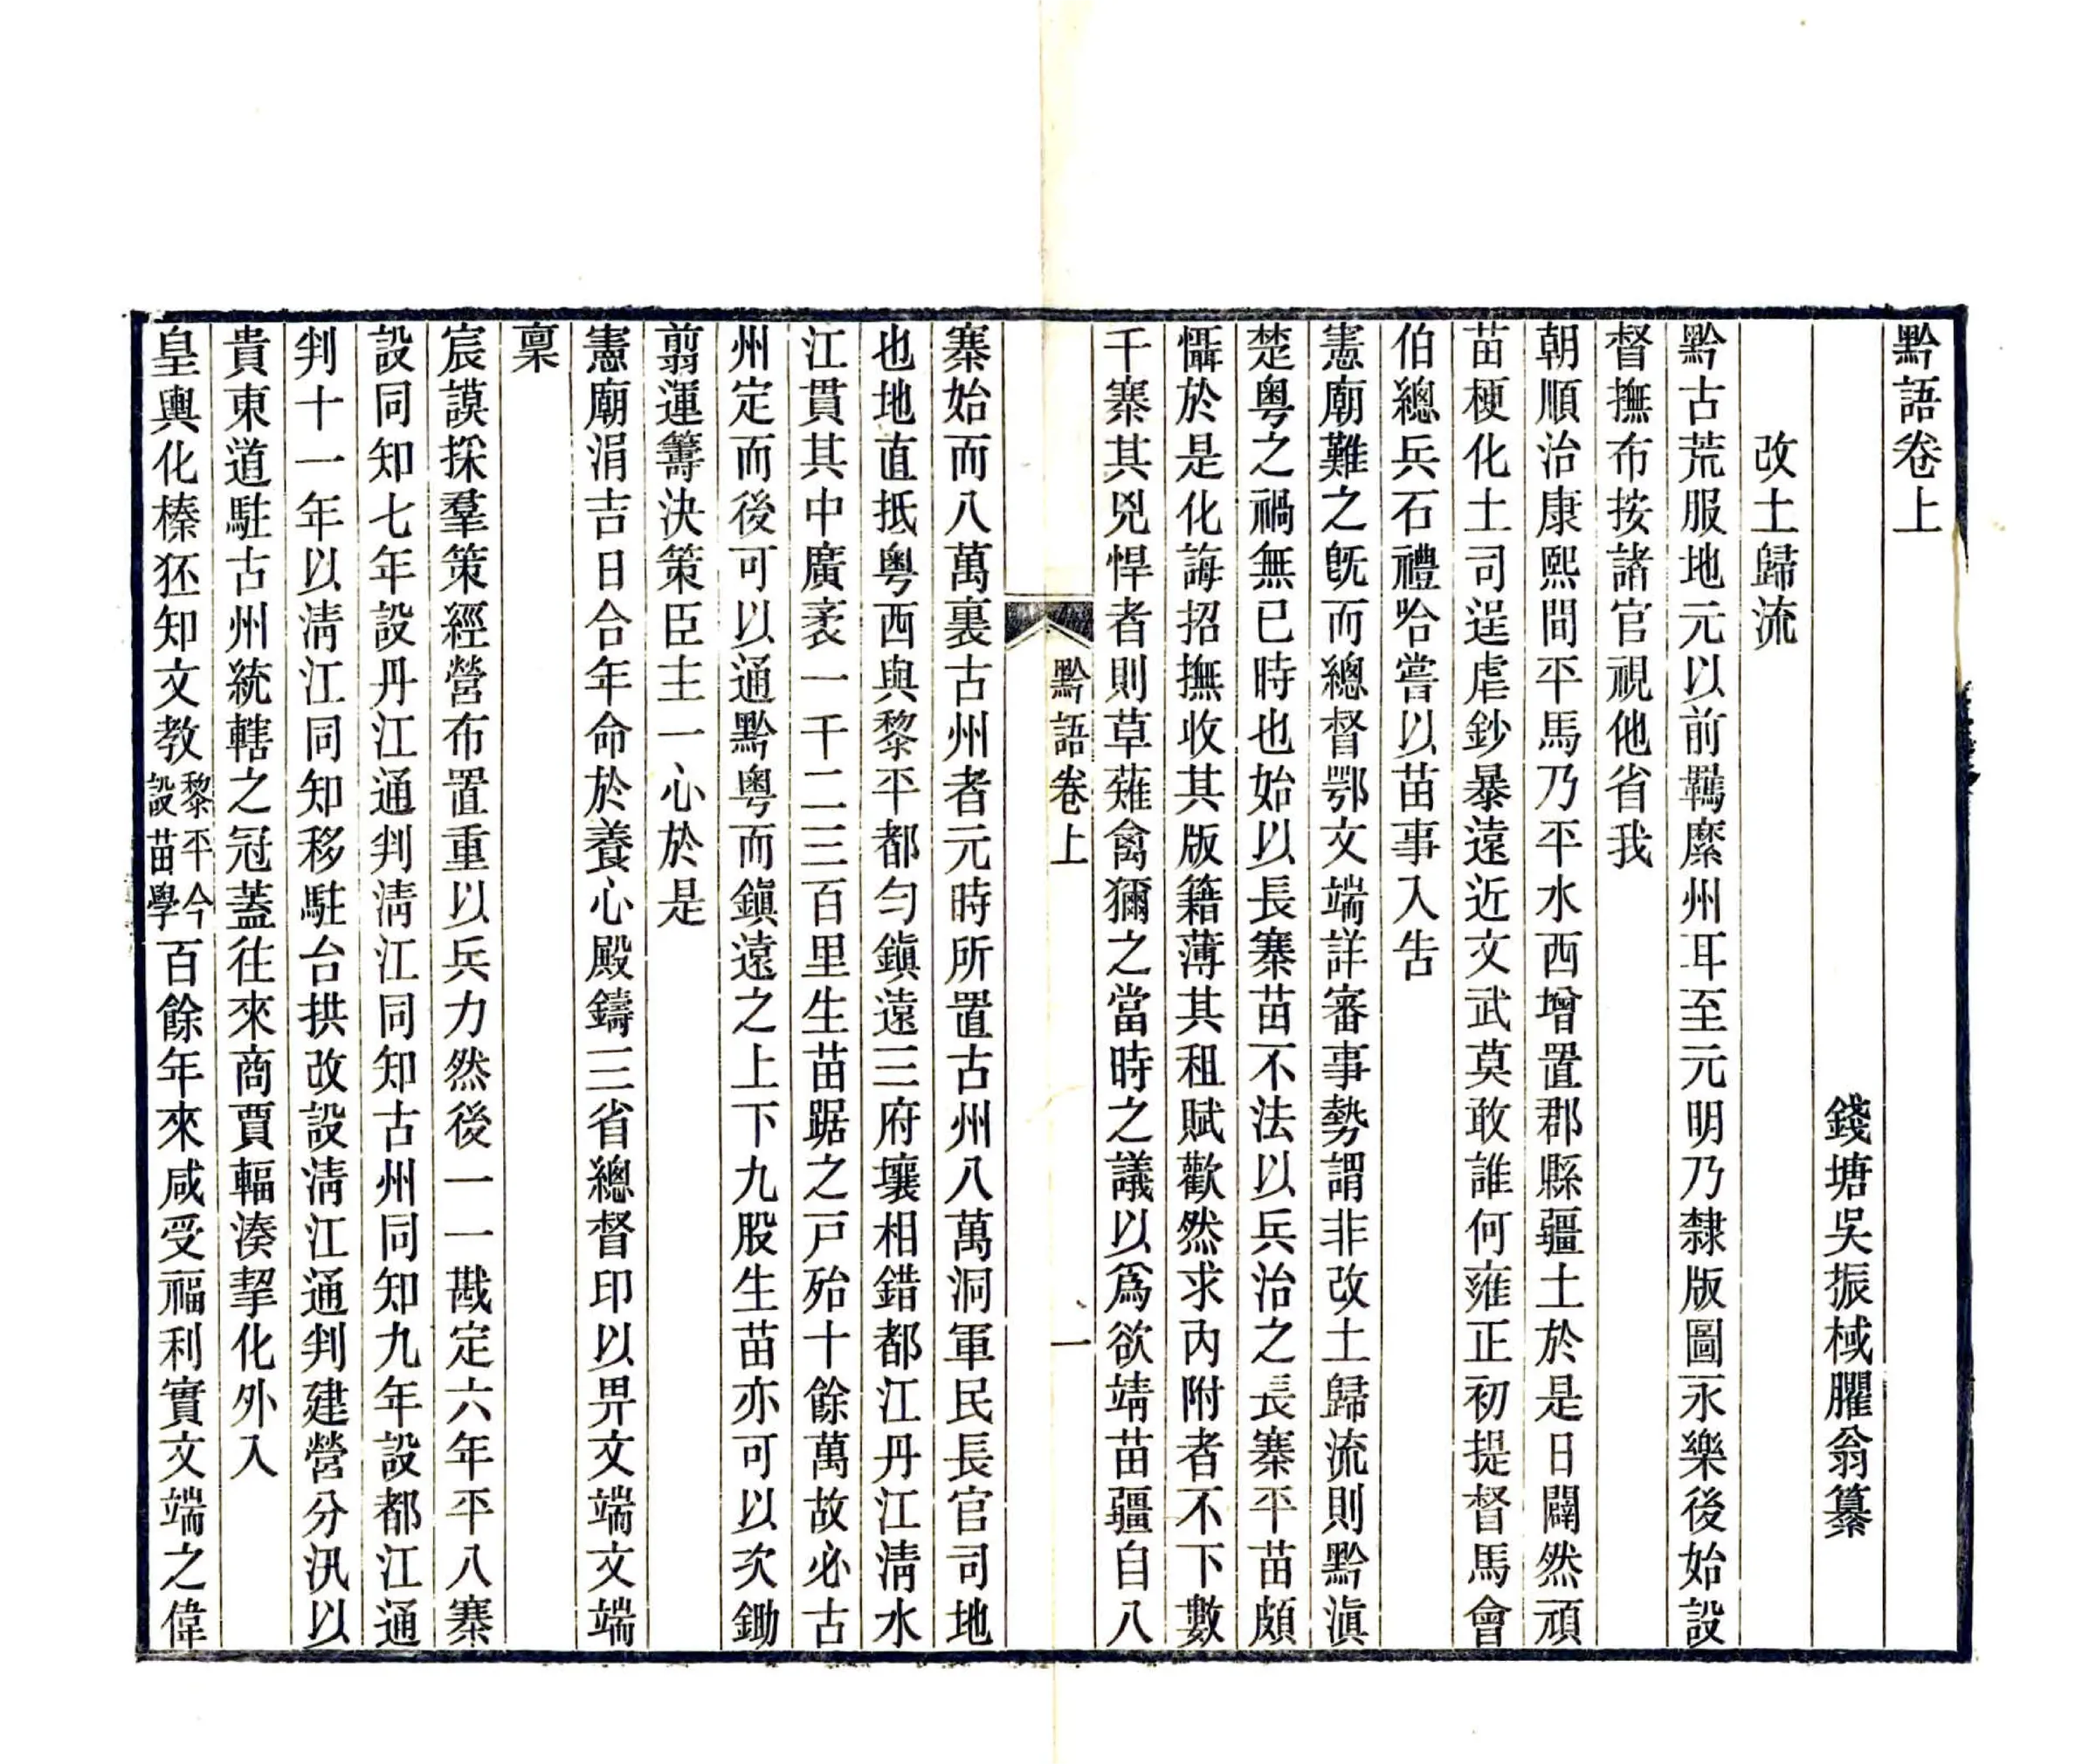 黔語卷上
錢塘吳振棫臞翁纂
改土歸流
黔古荒服地元以前羈縻州耳至元明乃隸版圖永樂後始設
督撫布按諸官視他省我
朝順治康熙間平馬乃平水西增置郡縣疆土於是日闢然頑
苗梗化土司逞虐鈔暴遠近文武莫敢誰何雍正初提督馬會
伯總兵石禮哈嘗以苗事入告
憲廟難之旣而總督鄂文端詳審事勢謂非改土歸流則黔滇
楚粵之禍無已時也始以長寨苗不法以兵治之長寨平苗頗
懾於是化誨招撫收其版籍薄其租賦歡然求內附者不下數
千寨其兇悍者則草薙禽獮之當時之議以爲欲靖苗疆自八
黔語卷上
一
寨始而八萬裏古州者元時所置古州八萬洞軍民長官司地
也地直抵粵西與黎平都勻鎭遠三府壤相錯都江丹江淸水
江貫其中廣袤一千二三百里生苗踞之戸殆十餘萬故必古
州定而後可以通黔粵而鎭遠之上下九股生苗亦可以次鋤
翦運籌決策臣主一心於是
憲廟涓吉日合年命於養心殿鑄三省總督印以畀文端文端
稟
宸謨採羣策經營布置重以兵力然後一一戡定六年平八寨
設同知七年設丹江通判淸江同知古州同知九年設都江通
判十一年以淸江同知移駐台拱改設淸江通判建營分汛以
貴東道駐古州統轄之冠蓋往來商賈輻湊挈化外入
皇輿化榛狉知文教黎平今設苗學百餘年來咸受福利實文端之偉